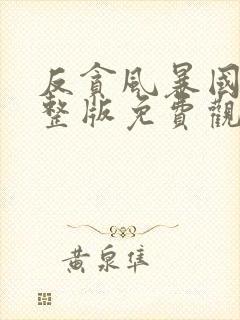 反貪風暴國
整版免費觀
黃泉隼